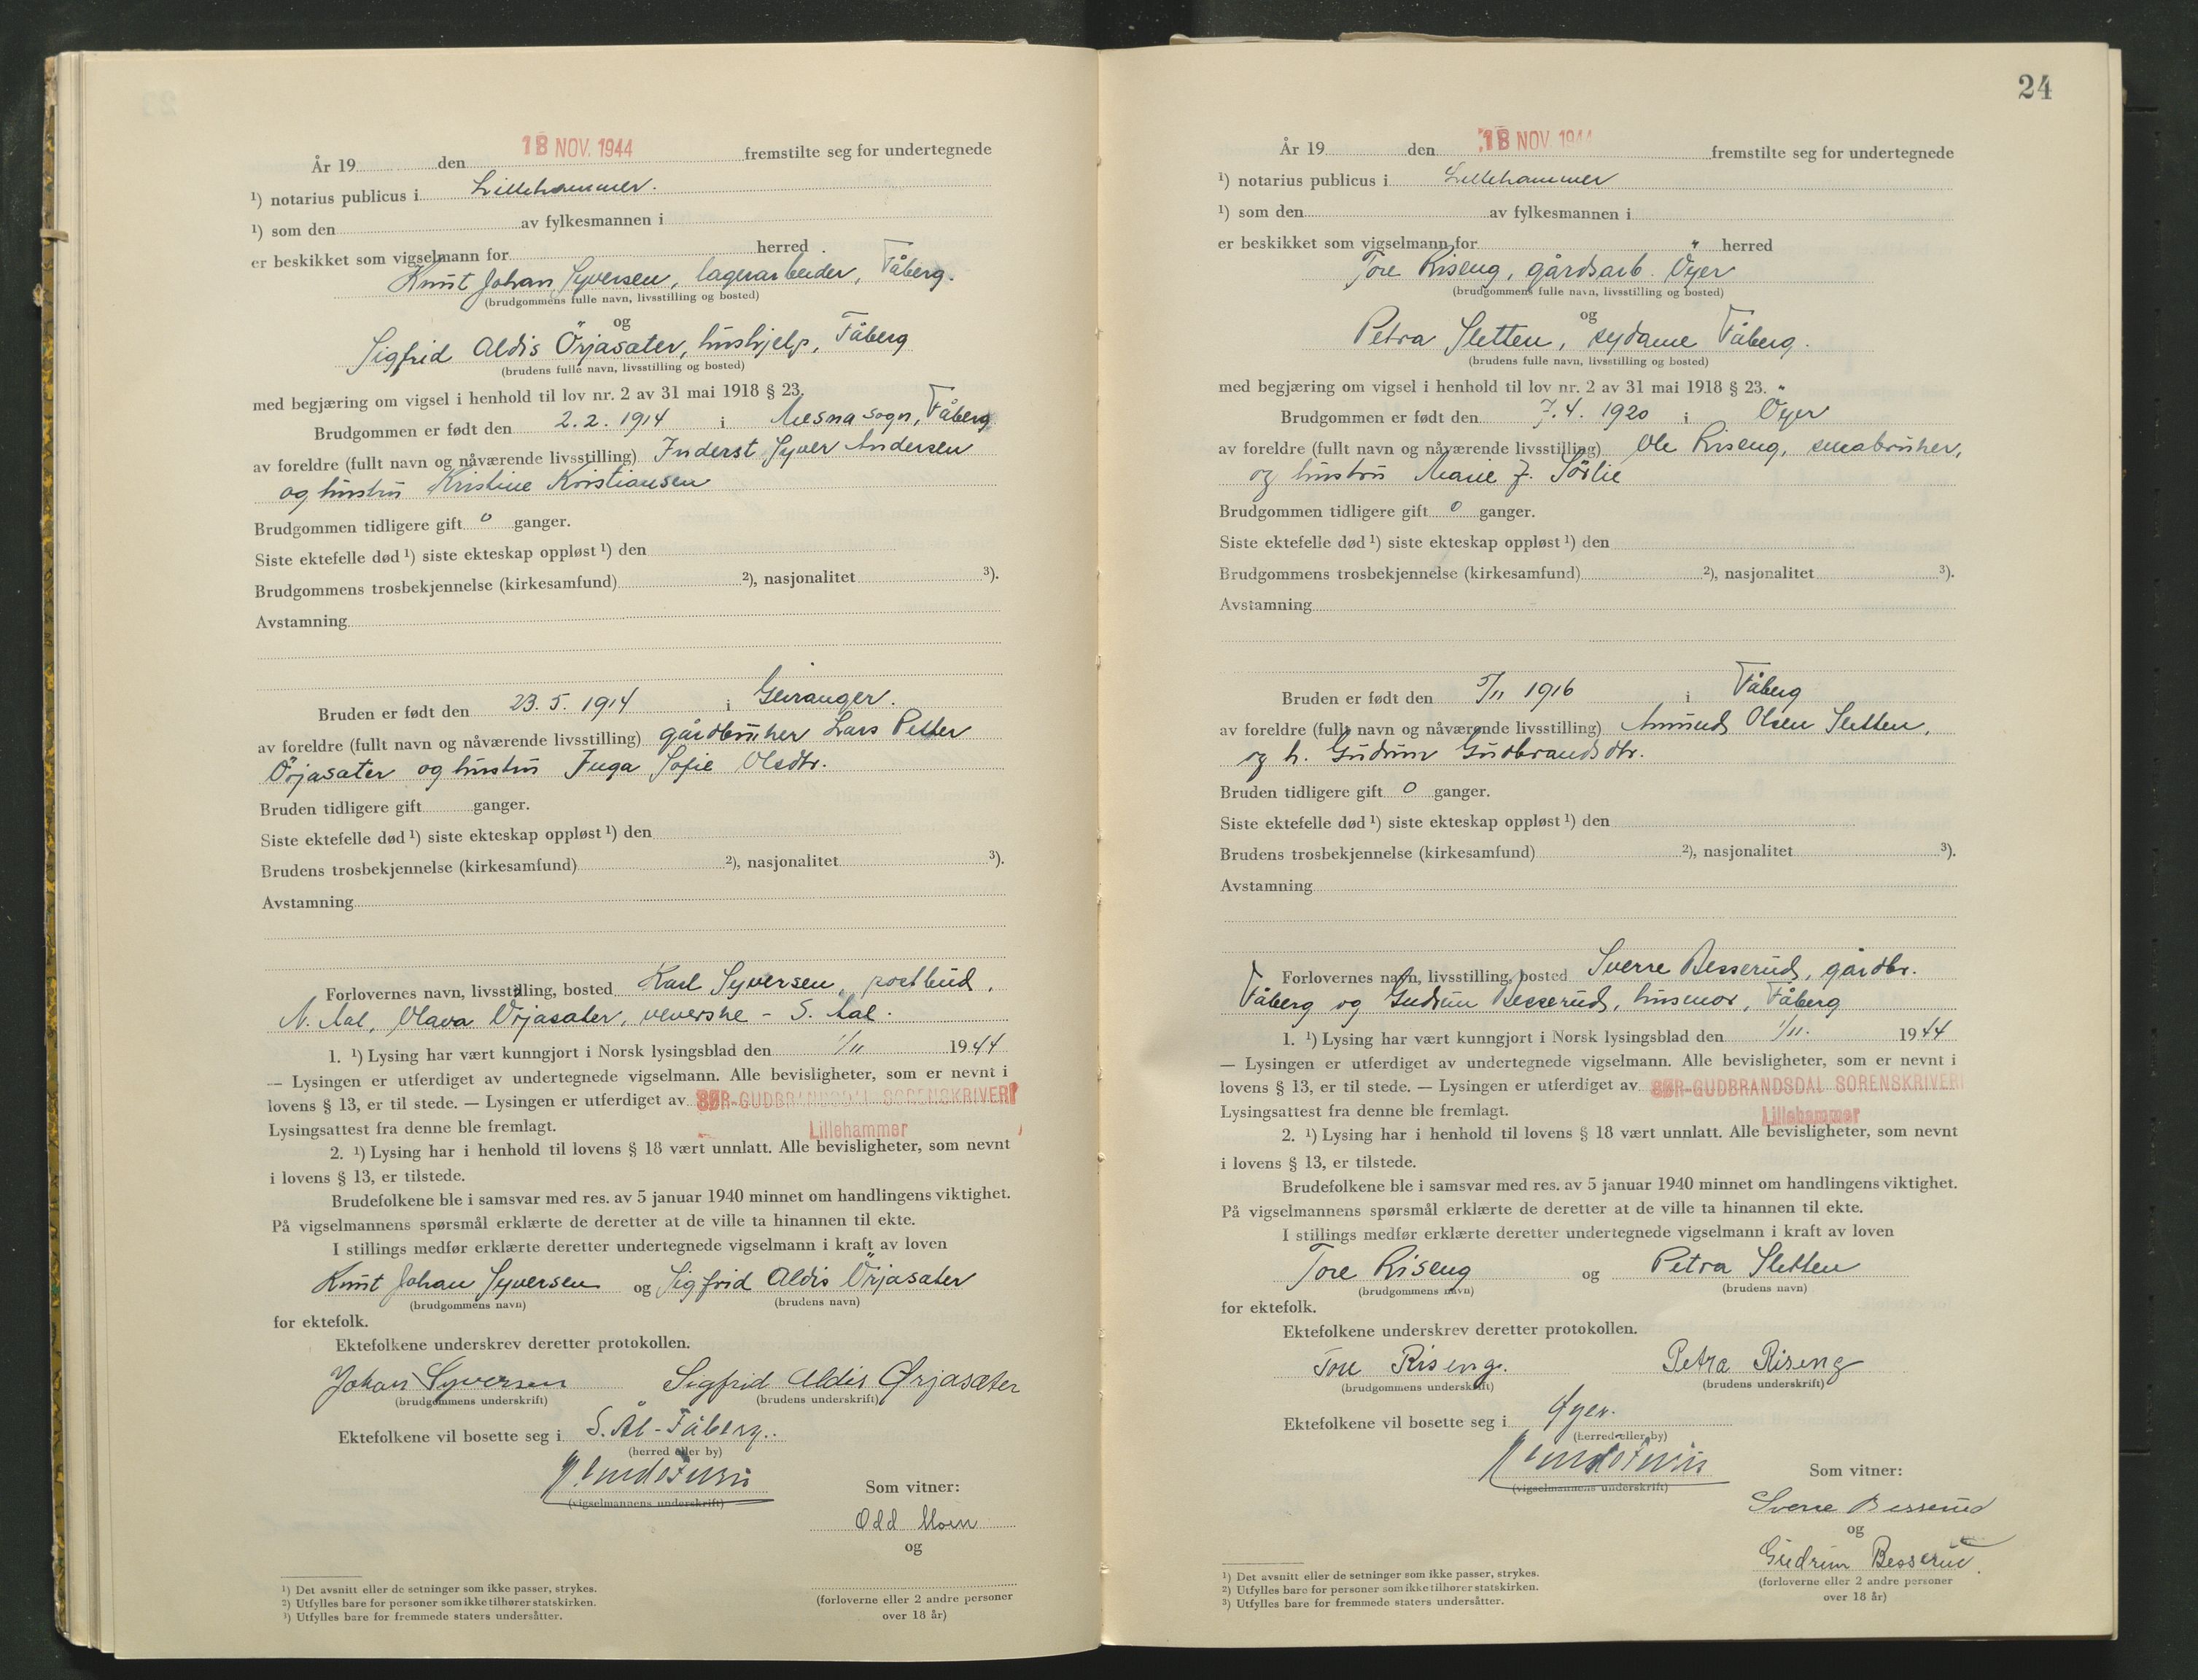 År 19 den 18 NOV. 1944 fremstilte seg for undertegnede
¹) notarius publicus i Lillehammer.
¹) som den av fylkesmannen i
er beskikket som vigselmann for herred
Knut Johan Syversen, lagerarbeider, Fåberg.
(brudgommens fulle navn, livsstilling og bosted)
og
Sigfrid Aldis Örjasæter, hushjelp, Fåberg
(brudens fulle navn, livsstilling og bosted)
med begjæring om vigsel i henhold til lov nr. 2 av 31 mai 1918 § 23.
Brudgommen er født den 2.2. 1914 i Mesna sogn, Fåberg
av foreldre (fullt navn og nåværende livsstilling) Inderst Syver Andersen
og hustru Kristine Kristiansen
Brudgommen tidligere gift 0 ganger.
Siste ektefelle død ¹) siste ekteskap oppløst ¹) den
Brudgommens trosbekjennelse (kirkesamfund) ²), nasjonalitet ³).
Avstamning
Bruden er født den 23. 5. 1914 i Geiranger.
av foreldre (fullt navn og nåværende livsstilling) gårdbruker Lars Petter
Örjasæter og hustru Inga Sofie Olsdtr.
Bruden tidligere gift ganger.
Siste ektefelle død ¹) siste ekteskap oppløst ¹) den
Brudens trosbekjennelse (kirkesamfund) ²), nasjonalitet ³).
Avstamning
Forlovernes navn, livsstilling, bosted Karl Syversen, postbud,
N. Aal, Olava Örjasæter, veverske - S. Aal.
1. ¹) Lysing har vært kunngjort i Norsk lysingsblad den 1/11 1944
— Lysingen er utferdiget av undertegnede vigselmann. Alle bevisligheter, som er nevnt i
lovens § 13, er til stede. — Lysingen er utferdiget av SØR-GUDBRANDSDAL SORENSKRIVERI
Lysingsattest fra denne ble fremlagt. Lillehammer
2. ¹) Lysing har i henhold til lovens § 18 vært unnlatt. Alle bevisligheter, som nevnt
i lovens § 13, er tilstede.
Brudefolkene ble i samsvar med res. av 5 januar 1940 minnet om handlingens viktighet.
På vigselmannens spørsmål erklærte de deretter at de ville ta hinannen til ekte.
I stillings medfør erklærte deretter undertegnede vigselmann i kraft av loven
Knut Johan Syversen og Sigfrid Aldis Örjasæter
(brudgommens navn) (brudens navn)
for ektefolk.
Ektefolkene underskrev deretter protokollen.
Johan Syversen Sigfrid Aldis Ørjasæter
(brudgommens underskrift) (brudens underskrift)
Ektefolkene vil bosette seg i S. Ål - Fåberg.
(herred eller by)
(vigselmannens underskrift)
Som vitner:
Odd Moen
og
(forloverne eller 2 andre personer
over 18 år)
¹) Det avsnitt eller de setninger som ikke passer, strykes.
²) Utfylles bare for personer som ikke tilhører statskirken.
³) Utfylles bare for fremmede staters undersåtter.
24
År 19 den 18 NOV. 1944 fremstilte seg for undertegnede
¹) notarius publicus i Lillehammer
¹) som den av fylkesmannen i
er beskikket som vigselmann for herred
Tore Riseng, gårdsarb. Öyer
(brudgommens fulle navn, livsstilling og bosted)
og
Petra Sletten, sydame Fåberg.
(brudens fulle navn, livsstilling og bosted)
med begjæring om vigsel i henhold til lov nr. 2 av 31 mai 1918 § 23.
Brudgommen er født den 7.4. 1920 i Öyer
av foreldre (fullt navn og nåværende livsstilling) Ole Riseng, småbruker,
og hustru Marie J. Sörlie
Brudgommen tidligere gift 0 ganger.
Siste ektefelle død ¹) siste ekteskap oppløst ¹) den
Brudgommens trosbekjennelse (kirkesamfund) ²), nasjonalitet ³).
Avstamning
Bruden er født den 5/11 1916 i Fåberg
av foreldre (fullt navn og nåværende livsstilling) Amund Olsen Sletten,
og h. Gudrun Gudbrandsdtr.
Bruden tidligere gift 0 ganger.
Siste ektefelle død ¹) siste ekteskap oppløst ¹) den
Brudens trosbekjennelse (kirkesamfund) ²), nasjonalitet ³).
Avstamning
Forlovernes navn, livsstilling, bosted Sverre Besserud, gårdbr.
Fåberg og Gudrun Besserud, husmor, Fåberg
1. ¹) Lysing har vært kunngjort i Norsk lysingsblad den 1/11. 1944
— Lysingen er utferdiget av undertegnede vigselmann. Alle bevisligheter, som er nevnt i
lovens § 13, er til stede. — Lysingen er utferdiget av SØR-GUDBRANDSDAL SORENSKRIVERI
Lysingsattest fra denne ble fremlagt. Lillehammer
2. ¹) Lysing har i henhold til lovens § 18 vært unnlatt. Alle bevisligheter, som nevnt
i lovens § 13, er tilstede.
Brudefolkene ble i samsvar med res. av 5 januar 1940 minnet om handlingens viktighet.
På vigselmannens spørsmål erklærte de deretter at de ville ta hinannen til ekte.
I stillings medfør erklærte deretter undertegnede vigselmann i kraft av loven
Tore Riseng og Petra Sletten
(brudgommens navn) (brudens navn)
for ektefolk.
Ektefolkene underskrev deretter protokollen.
Tore Riseng. Petra Riseng
(brudgommens underskrift) (brudens underskrift)
Ektefolkene vil bosette seg i Øyer.
(herred eller by)
(vigselmannens underskrift)
Som vitner:
Sverre Besserud
og
Gudrun Besserud.
(forloverne eller 2 andre personer
over 18 år)
¹) Det avsnitt eller de setninger som ikke passer, strykes.
²) Utfylles bare for personer som ikke tilhører statskirken.
³) Utfylles bare for fremmede staters undersåtter.